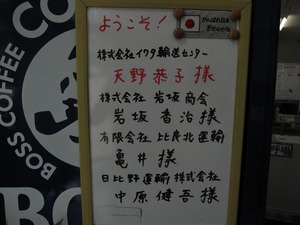 ようこそ!
株式会社イワタ輸送センター
天野恭子様
株式会社 岩坂商会
岩坂香治様
有限会社 比良北運輸
亀井様
日比野運輸株式会社
中原健吾様
BOSS COFFEE
BO